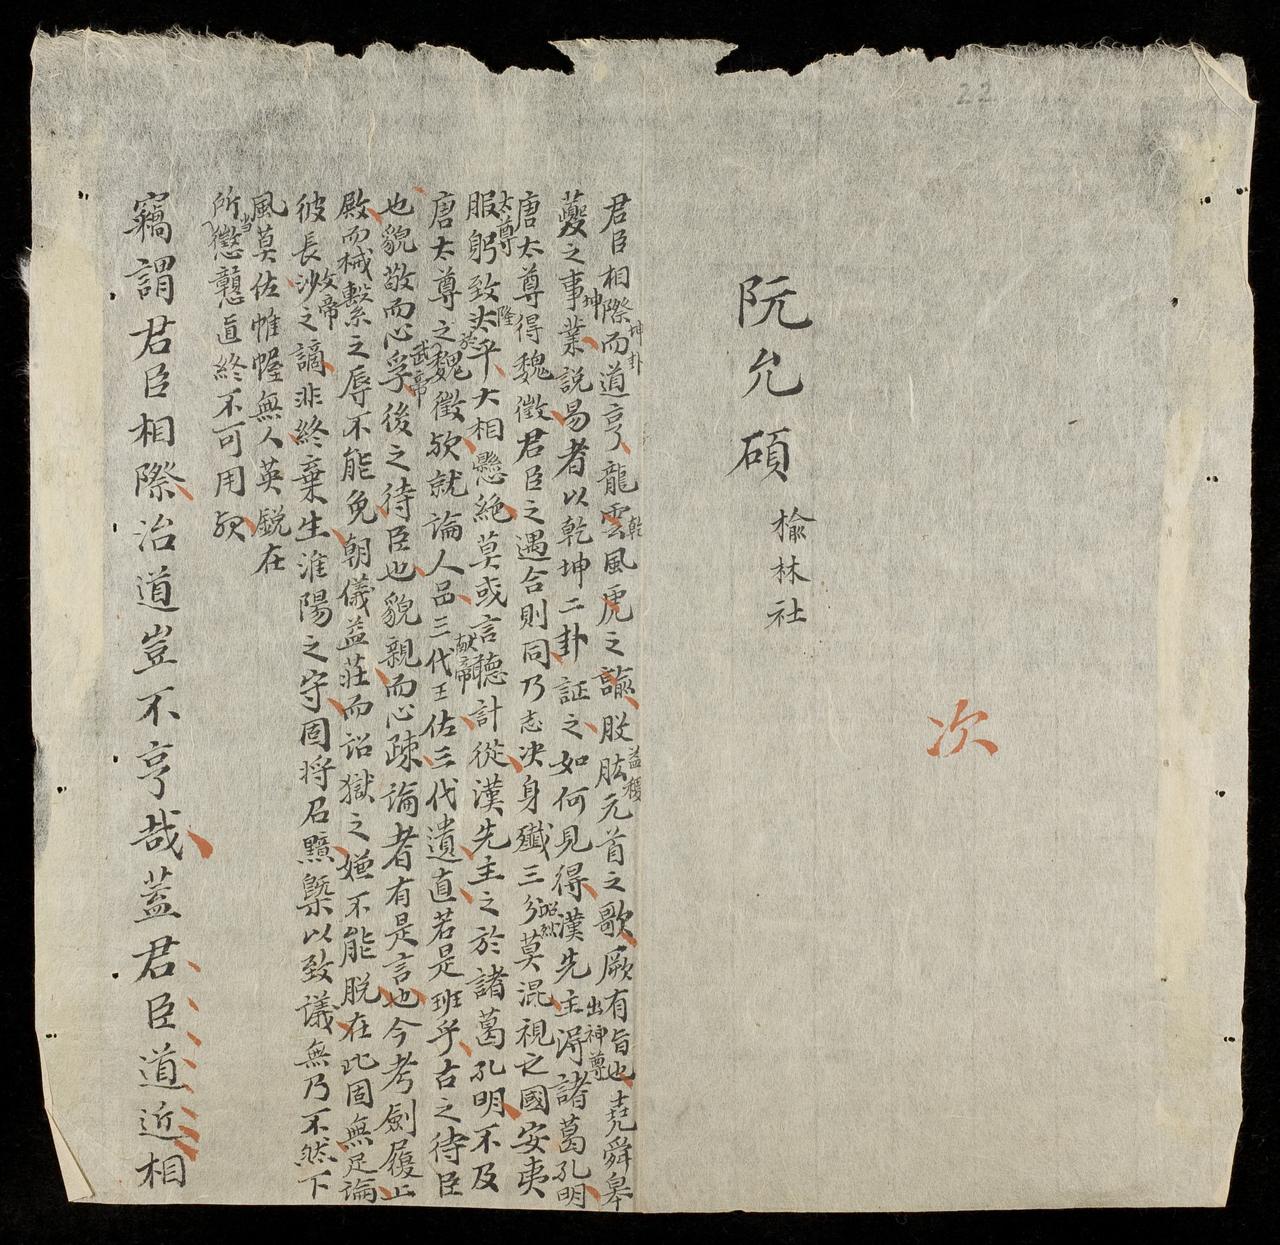 22
次
阮允碩
榆林社
君臣相際而道亨龍雲風虎之諭股肱元首之歌厥有旨也堯舜皋
坤卦
乾
益稷
夔之事業說易者以乾坤二卦証之如何見得漢先主得諸葛孔明
坤
出神尊
唐太尊得魏徵君臣之遇合則同乃志决身殲三分莫混視之國安夷
昭烈
服躬致太平大相懸絶莫或言聴計從漢先主之於諸葛孔明不及
太尊
隆
唐太尊之於魏徵欤就論人品三代王佐三代遺直若是班乎古之待臣
献帝
也貌敬而心孚後之待臣也貌親而心疎論者有是言也今考劍履上
武帝
殿而械繫之辱不能免朝儀益莊而詔獄之嫌不能脱在此固無足論
彼長沙之謫非終棄生淮陽之守固将召黯槩以致議無乃不然下
文帝
風莫佐帷幄無人英銳在
所當懲戇直終不可用欤
竊謂君臣相際治道豈不亨哉蓋君臣道近相